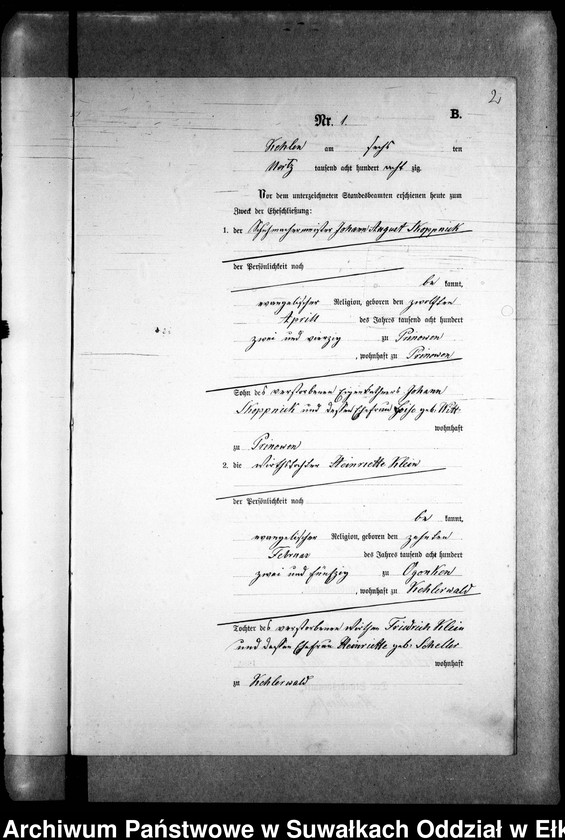 2
Nr. 1.
B.
Kehlen am sechs ten
Maertz tausend acht hundert acht zig.
Vor dem unterzeichneten Standesbeamten erschienen heute zum
Zweck der Eheschließung:
1. der Schuhmachermeister Johann August Skoppnick
der Persönlichkeit nach
be kannt,
evangelischer Religion, geboren den zwölften
Aprill des Jahres tausend acht hundert
zwei und vierzig zu Prinowen
, wohnhaft zu Prinowen
Sohn des verstorbenen Eigenkäthners Johann
Skoppnick und dessen Ehefrau Loise geb. Witt
wohnhaft
zu Prinowen
2. die Wirthstochter Heinriette Klein
der Persönlichkeit nach
be kannt,
evangelischer Religion, geboren den zehnten
Februar des Jahres tausend acht hundert
zwei und fünfzig zu Ogonken
, wohnhaft zu Kehlerwald
Tochter des verstorbenen Wirthen Friedrich Klein
und dessen Ehefrau Heinriette geb. Scheller
wohnhaft
zu Kehlerwald
Archiwum Państwowe w Suwałkach Oddział w Ełk